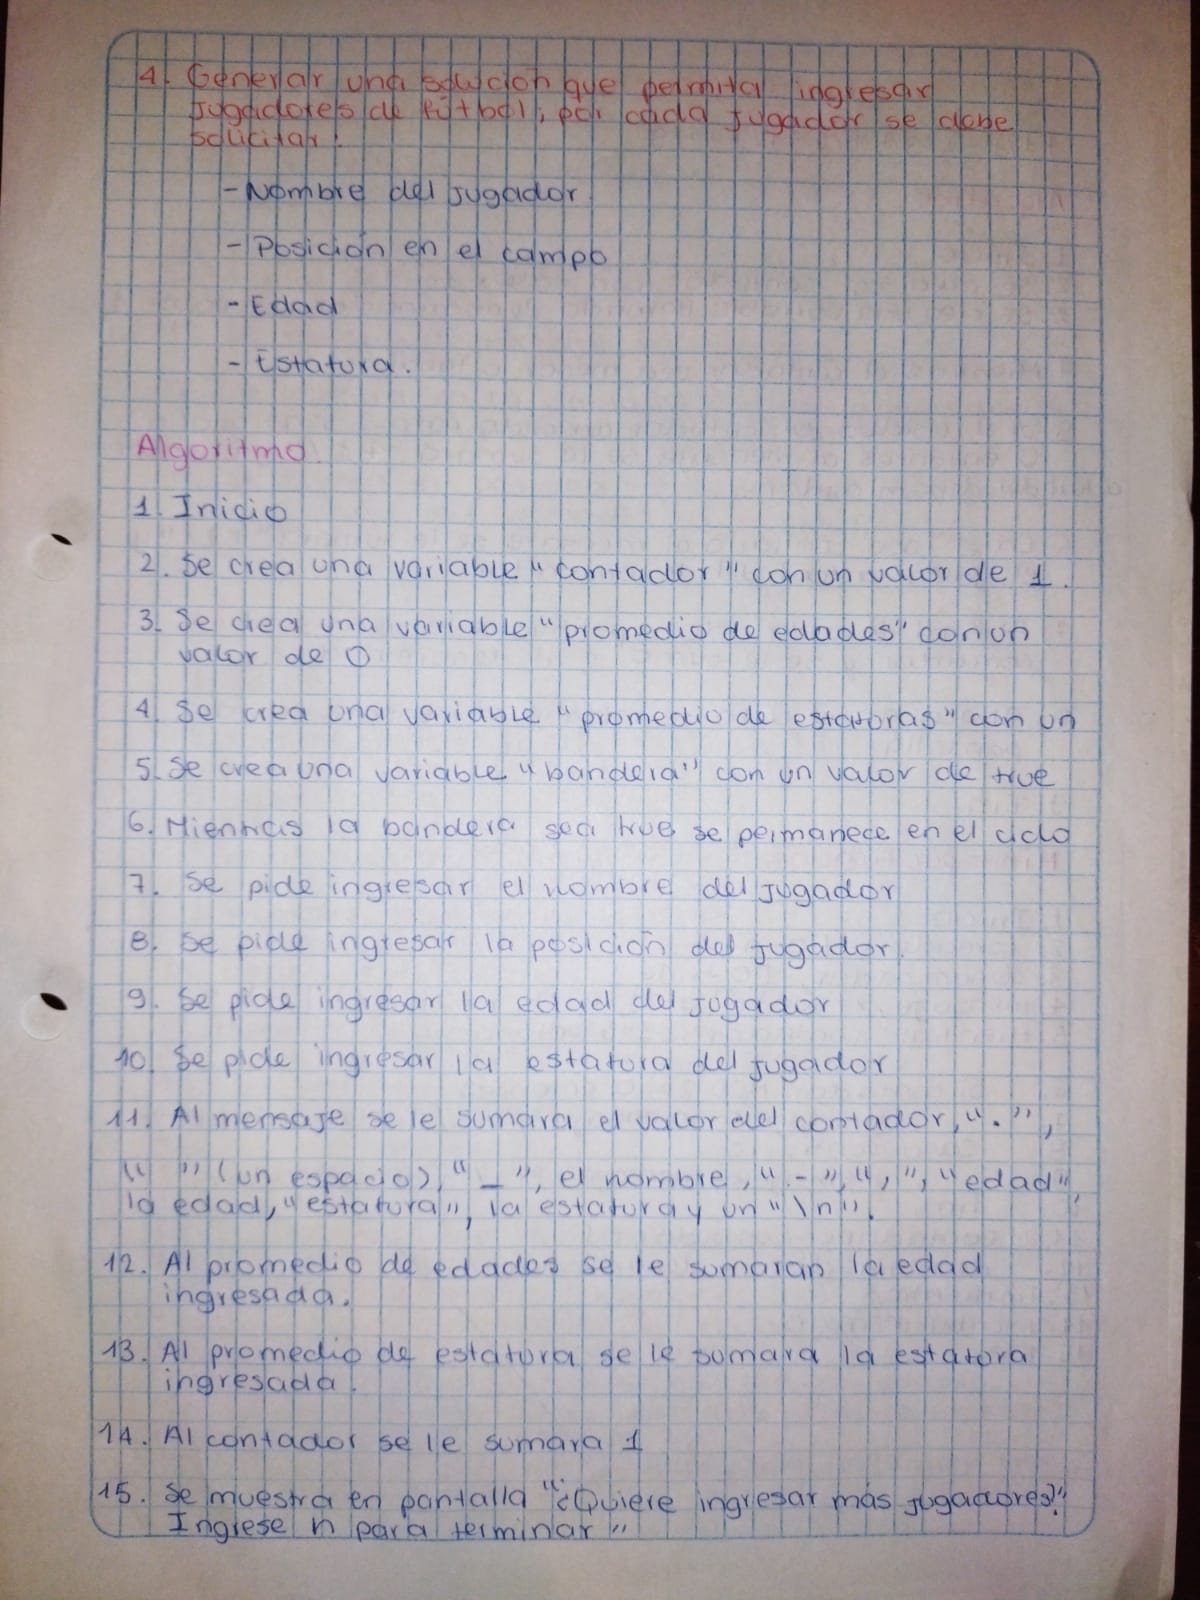 4. Generar una solución que permita ingresar
jugadores de fútbol, por cada jugador se debe
solicitar:
- Nombre del jugador
- Posición en el campo
- Edad
- Estatura.
Algoritmo
1. Inicio
2. Se crea una variable "contador" con un valor de 1.
3. Se crea una variable "promedio de edades" con un
valor de 0
4. Se crea una variable "promedio de estaturas" con un
5. Se crea una variable "bandera" con un valor de true
6. Mientras la bandera sea true se permanece en el ciclo
7. Se pide ingresar el nombre del jugador
8. Se pide ingresar la posición del jugador.
9. Se pide ingresar la edad del jugador
10. Se pide ingresar la estatura del jugador
11. Al mensaje se le sumara el valor del contador, ".",
" " (un espacio), "_", el nombre, ".-", ",", "edad",
la edad, "estatura", la estatura y un "\n".
12. Al promedio de edades se le sumaran la edad
ingresada.
13. Al promedio de estatura se le sumara la estatura
ingresada.
14. Al contador se le sumara 1
15. Se muestra en pantalla "¿Quiere ingresar más jugadores?"
Ingrese n para terminar"